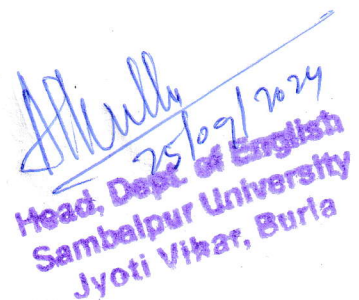 25/09/2024
Head, Dept. of English
Sambalpur University
Jyoti Vihar, Burla